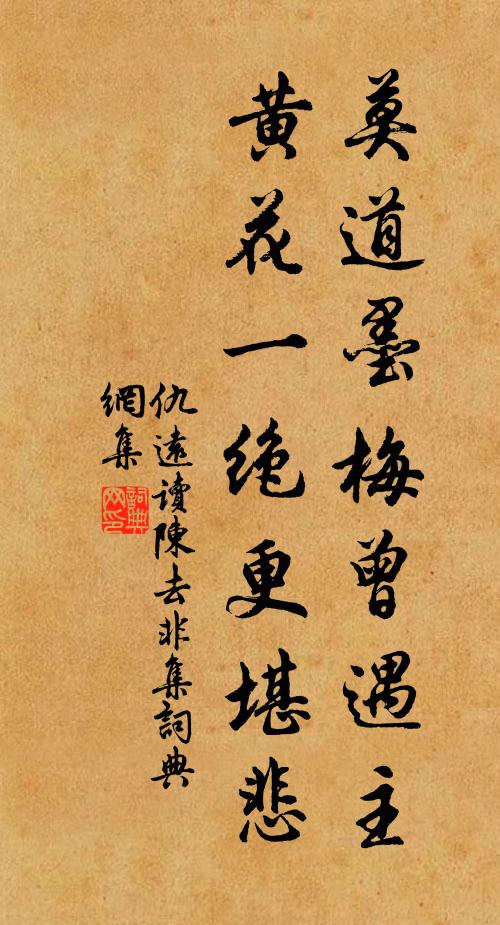 莫道墨梅曾遇主
黄花一绝更堪悲
仇遠讀陳去非集詞典
網集
詞典
网印